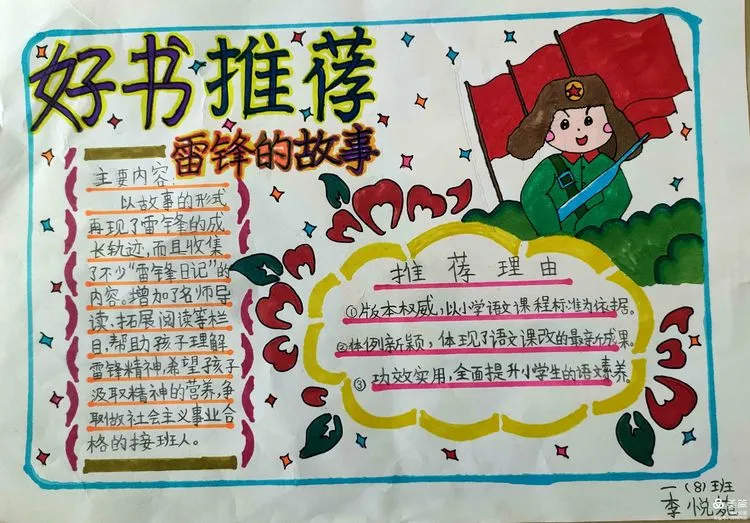 好书推荐
雷锋的故事
主要内容:
以故事的形式
再现了雷锋的成
长轨迹,而且收集
了不少“雷锋日记”的
内容。增加了名师导
读、拓展阅读等栏
目,帮助孩子理解
雷锋精神,希望孩子
汲取精神的营养,争
取做社会主义事业合
格的接班人。
推荐理由
①版本权威,以小学语文课程标准为依据。
②体例新颖,体现了语文课改的最新成果。
③功效实用,全面提升小学生的语文素养。
一(8)班
李悦苑